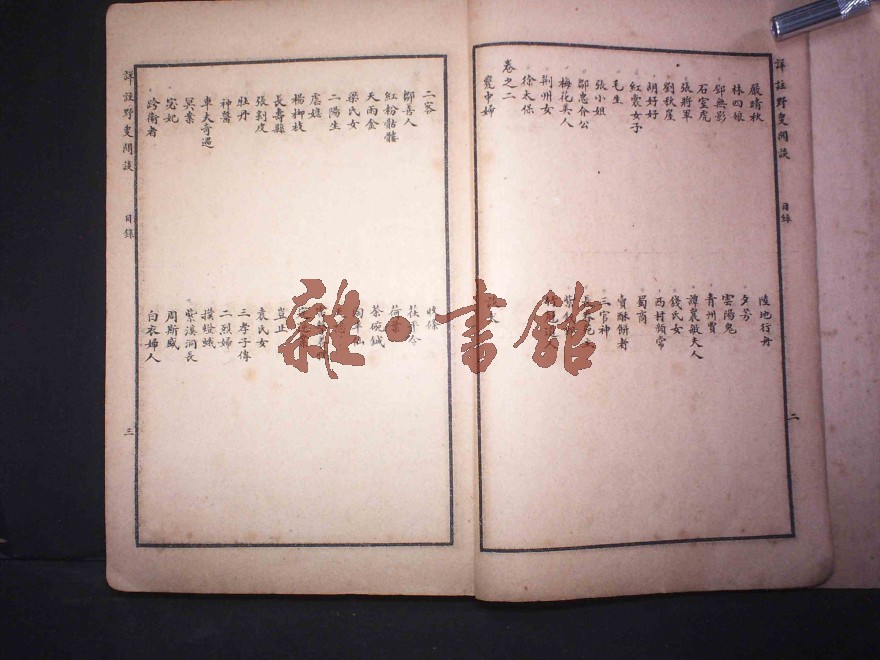 詳註野叟閒談
目錄
二
嚴晴秋
陸地行舟
林四娘
夕芳
邹無影
雲陽鬼
石室虎
青州賈
張將軍
譚襄敏夫人
劉秋崖
錢氏女
胡好好
西村頻常
紅裳女子
蜀商
毛生
賣酥餅者
張小姐
三官神
鄒忠介公
梅花美人
荆州女
徐太保
卷之二
甕中婦
二客
鄒善人
茯苓
紅粉骷髏
荷葉
天雨金
茶碗鍼
梁氏女
二陽生
虐媳
楊柳枝
長壽縣
豈止
張剝皮
袁氏女
牡丹
三孝子傳
神醫
二烈婦
車夫奇遇
撲燈蛾
冥案
紫溪洞長
宓妃
周斯盛
跨衛者
白衣婦人
詳註野叟閒談
目錄
三
雜·書館